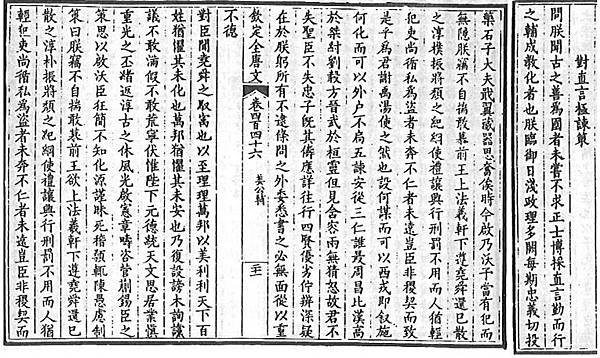 對直言極諫策
問朕聞古之善為國者未嘗不求正士博採直言勤而行
之輔成教化者也朕臨御日淺政理多闕每期忠義切投
藥石子大夫戢翼藏器思奮俟時今啟乃沃子當有犯而
無隱朕竊不自揣敢慕前王上法羲軒下遵堯舜還已散
之淳樸振將頹之紀綱使禮讓興行刑罰不用而人猶輕
犯吏尚循私為盜者未奔不仁者未遠豈臣非稷契而致
是乎為君謝禹湯使之然也設何謀而可以西戎即敘施
何化而可以外戶不扃五諫安從三仁誰最周昌比漢高
於桀紂劉毅方晉武於桓靈但見含容兩無猜怒故君不
失聖臣不失忠子既其儔應詳往行四賢優劣佇辨深疑
在於朕躬所有不逮條問之外委悉書之必無面從以重
不德
欽定全唐文 卷四百四十六 姜公輔
對臣聞堯舜之馭宇也以至理理萬邦以美利利天下百
姓猶懼其未化也萬邦猶懼其未安也乃復設謗木詢讜
議不敢滿假不敢荒寧伏惟陛下元德統天文思居業纘
重光之丕緒返淳古之休風光啟憲章疇咨芻蕘錫臣之
策思以啟沃臣狂簡不知化源謹昧死稽顙輒陳愚慮制
策曰朕竊不自揣敢慕前王欲上法羲軒下遵堯舜還已
散之淳朴振將頹之紀綱使禮讓興行刑罰不用而人猶
輕犯吏尚循私為盜者未奔不仁者未遠豈臣非稷契而